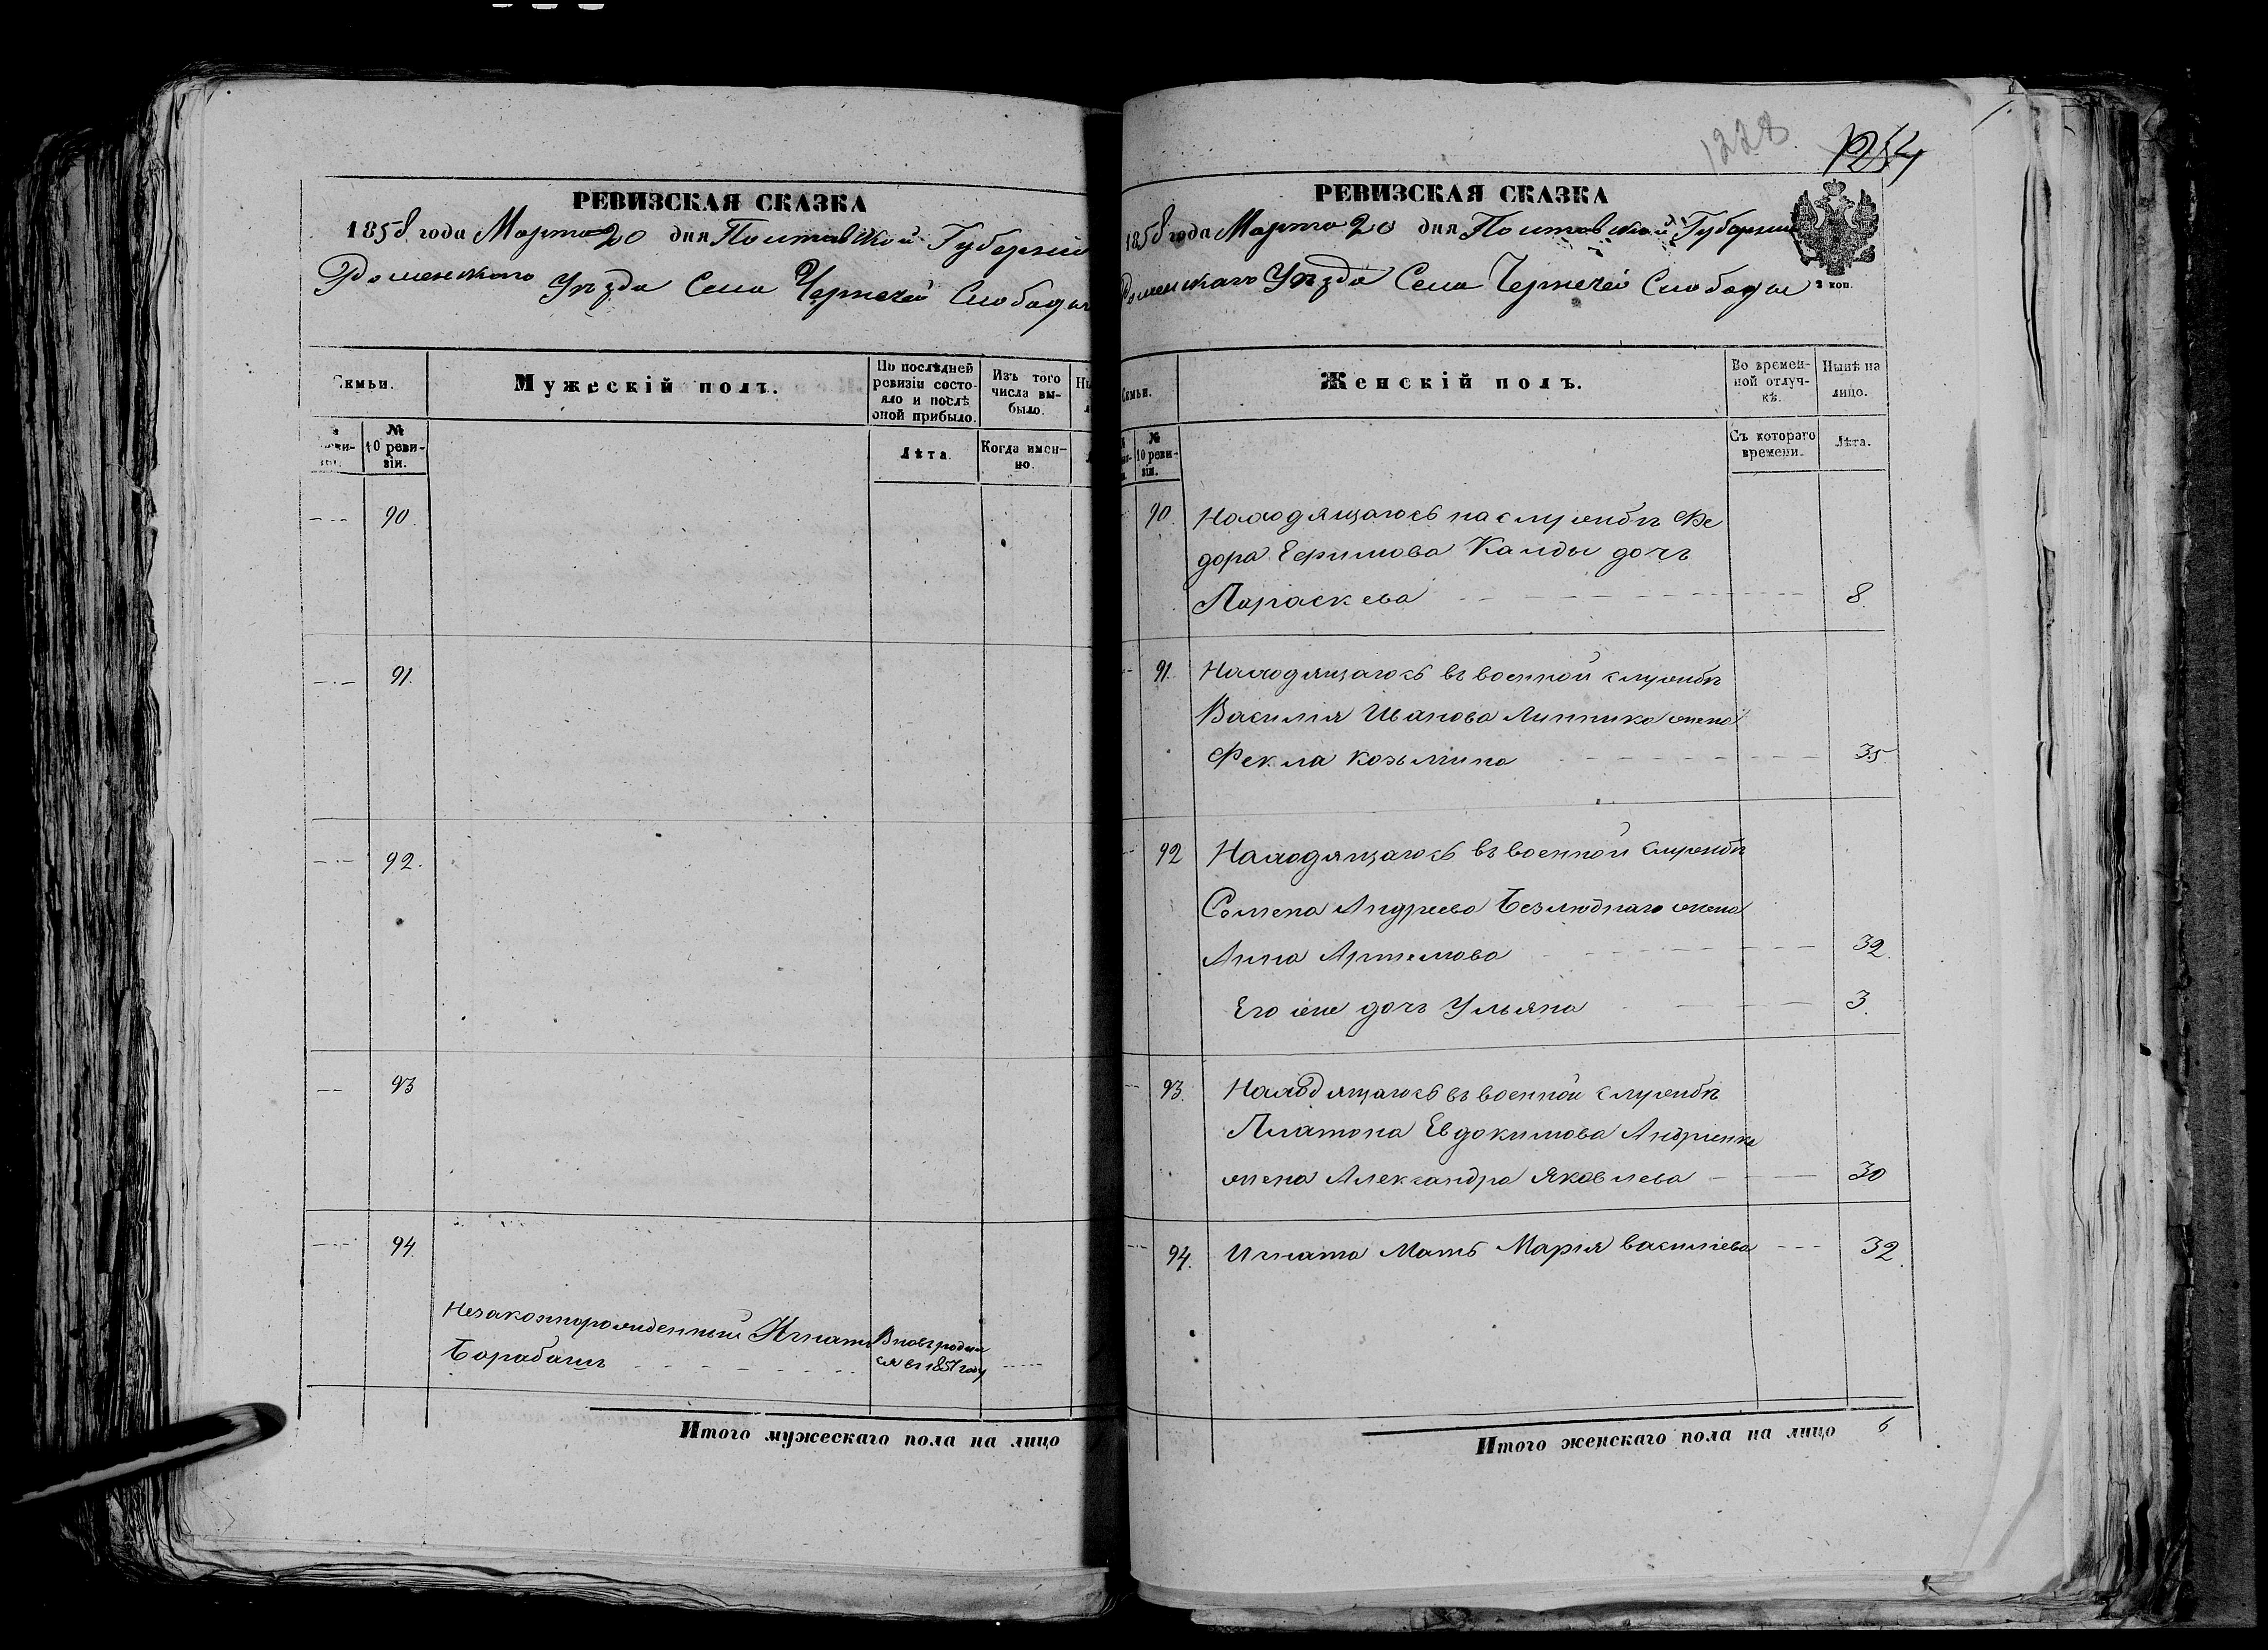 РЕВИЗСКАЯ СКАЗКА
1858 года Марта 20 дня Полтавской Губерніи
Роменскаго Уѣзда Села Чернечей Слободы
Семьи.
Мужескій полъ.
По послѣдней ревизіи состояло и послѣ оной прибыло.
Изъ того числа выбыло.
№ 10 ревизіи.
Лѣта.
Когда именно.
90.
91.
92.
93
94.
Незаконнорожденный Игнатъ
Барабашъ
Вновь родился въ 1857 году
Итого мужескаго пола на лицо
1228.
1254
РЕВИЗСКАЯ СКАЗКА
1858 года Марта 20 дня Полтавской Губерніи
Роменскаго Уѣзда Села Чернечей Слободы
3 коп.
Семьи.
Женскій полъ.
Во временной отлучкѣ.
Нынѣ на лицо.
№ 10 ревизіи.
Съ котораго времени.
Лѣта.
90. Находящагось на службѣ Фе
дора Ефимова Калды дочь
Параскева 8.
91. Находящагось въ военной службѣ
Василія Иванова Линника жена
Фекла Козьмина 35
92 Находящагось въ военной службѣ
Семена Андреева Безлюднаго жена
Анна Артемова 32.
Его же дочь Ульяна 3.
93. Находящагось въ военной службѣ
Платона Евдокимова Андріенка
жена Александра Яковлева 30
94. Игната Мать Марія Василіева 32.
Итого женскаго пола на лицо 6